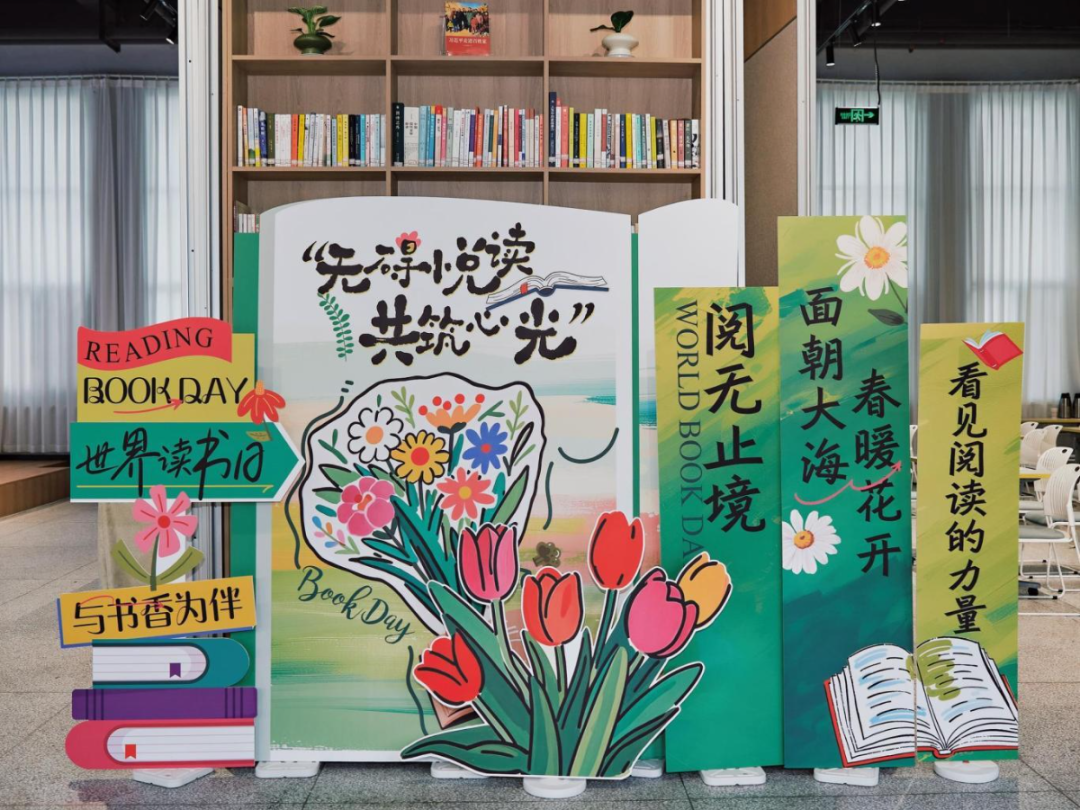 “无碍小悦读
共筑心光”
READING
BOOK DAY
世界读书日
与书香为伴
Book Day
阅无止境
WORLD BOOK DA
面朝大海
春暖花开
看见阅读的力量